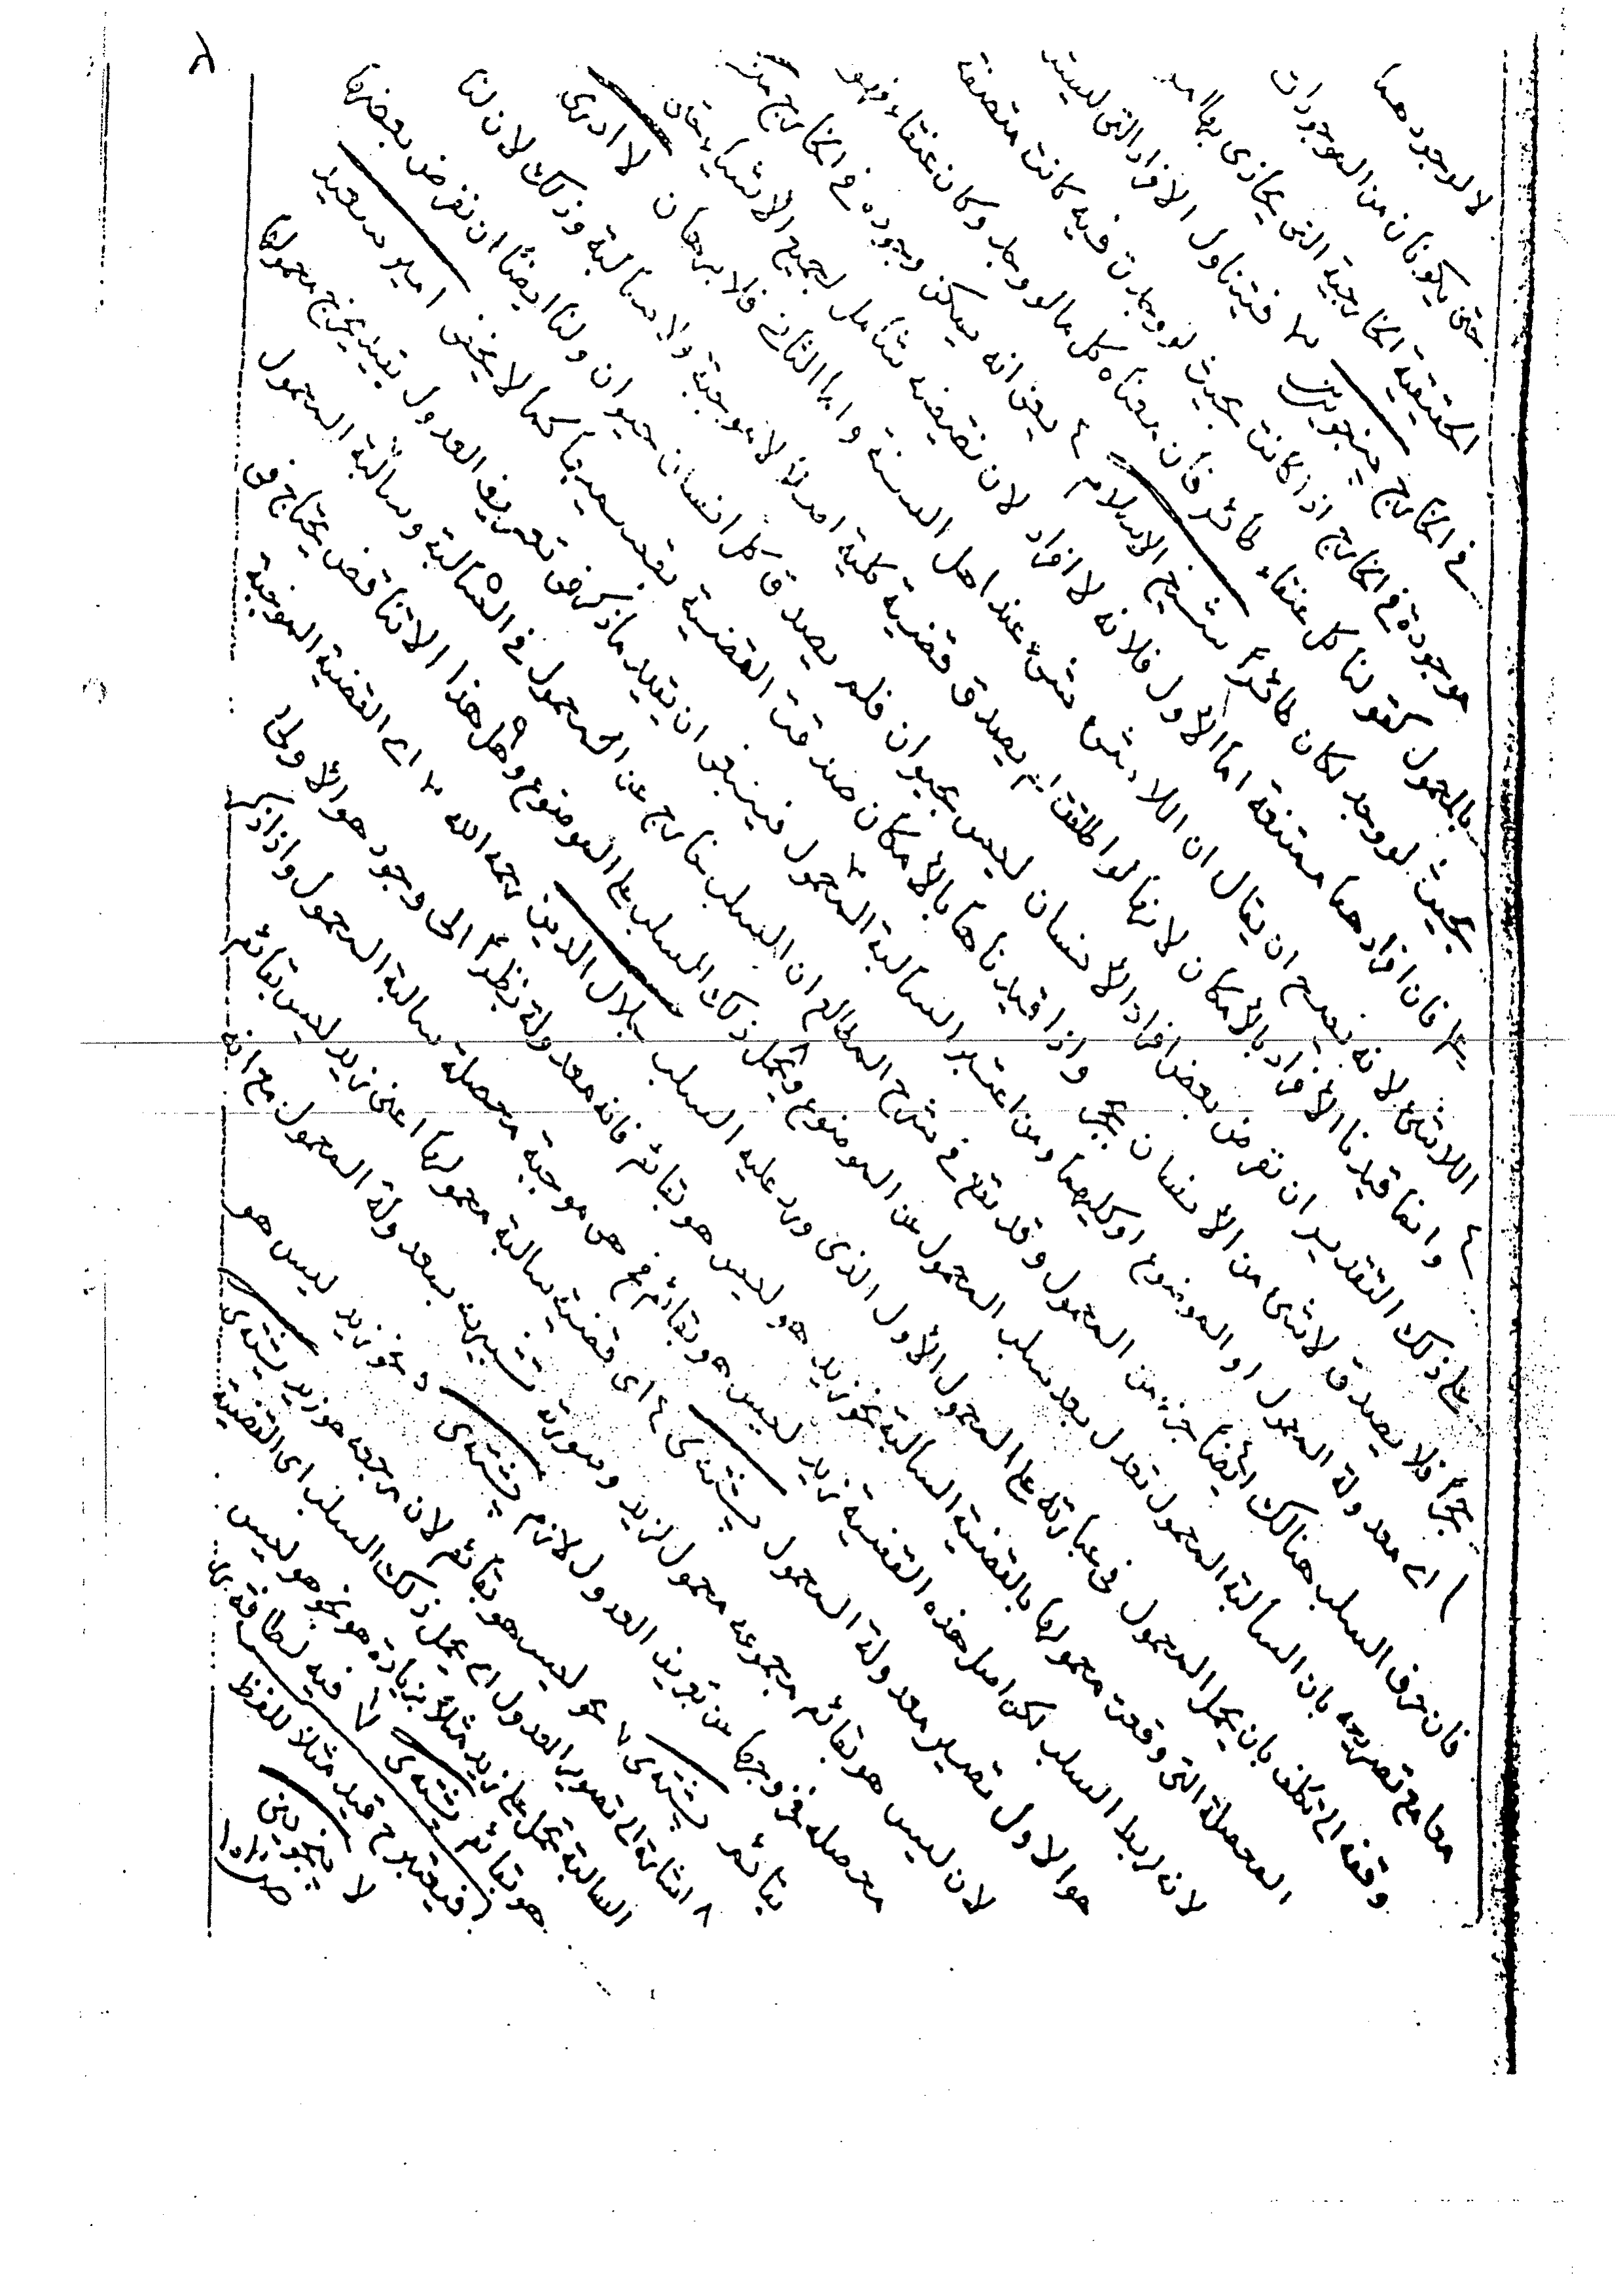 لا لوجودهما
حتى يكونان من الموجودات
الحقيقية الخارجية التى يحاذى بها
فى الخارج پينجوينى فيتناول الافراد التى ليست
موجودة فى الخارج اذا كانت بحيث لو وجدت فيه كانت متصفة
بالمحمول كقولنا كل عنقاء طائر فان معناه كل ما لو وجد وكان عنقاء فهو
بحيث لو وجد لكان طائرا شيخ الاسلام ٤ يعنى انه يمكن وجوده فى الخارج
فان افرادهما ممتنعة اما الأول فلانه لا افراد لان نقيضه شامل لجميع الاشياء حتى
اللاشئ لانه يصح ان يقال ان اللاشئ شئ عند اهل السنة واما الثانى فلا برهان لا ادرى
٤ وانما قيدنا الأفراد بالأمكان لانها لو اطلقت لم يصدق قضية كلية اصلا لا موجبة ولا سالبة وذلك لان لنا
على ذلك التقدير ان نفرض بعض افراد الأنسان ليس بحيوان فلم يصدق كل انسان حيوان ولنا ايضًا ان نفرض بعضها
حجرا فلا يصدق لاشئ من الأنسان بحجر واذا قيدناها بالأمكان صدقت القضية كما لا يخفى امير سعيد
اى معدولة المحمول او الموضوع او كليهما ومن اعتبر السالبة المحمول فينبغى ان يقيد ما ذكر فى تعريف العدول بقيد يخرج محمولها
فان حرف السلب هنالك ايضًا جزء من المحمول وقد وقع فى شرح المطالع ان السلب خارج عن المحمول فى السالبة وسالبة المحمول
معا مع تصريحه بان السالبة المحمول تعدل بعد سلب المحمول عن الموضوع ويحمل ذلك السلب على الموضوع وهل هذا الا تناقض يحتاج فى
دفعه الى تكلف بان يحمل المحمول فى عبارته على المحمول الأول الذى ورد عليه السلب جلال الدين رحمه الله ٢ اى القضية الموجبة
المحصلة التى وقعت محمولها بالقضية السالبة نحو زيد هو ليس هو بقائم فانه معدولة نظرا الى وجود هو الأولى
لانه ربط السلب لكن اصل هذه القضية زيد ليس هو بقائم فح هى موجبة محصلة سالبة المحمول واذا ذكر
هو الاول تصير معدولة المحمول پشتدى ٤ اى قضية سالبة محمولها اعنى زيد ليس بقائم
لان ليس هو بقائم مجموعه محمول لزيد وصورة شبيهه بمعدولة المحمول مع انه
محصله فخروجها عن تعريف العدول لازم پشتدى د نحو زيد ليس هو
بقائم پشتدى ٧ نحو ليس هو بقائم لان مرجعه هو زيد پشتدى
٨ اشارة الى تصوير العدول اى يحمل ذلك السلب اى القضية
السالبة يحمل على زيد مثلاً بزيادة هو نحو هو ليس
هو بقائم پشتدى ٦ فيه لطافة
فيقترح قيد مثلاً للفظ
لا پينجوينى